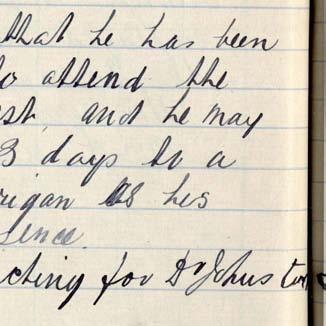 that he has been
to attend the
est, and he may
3 days to a
rigan as his
sence
cting for Dr Johnston